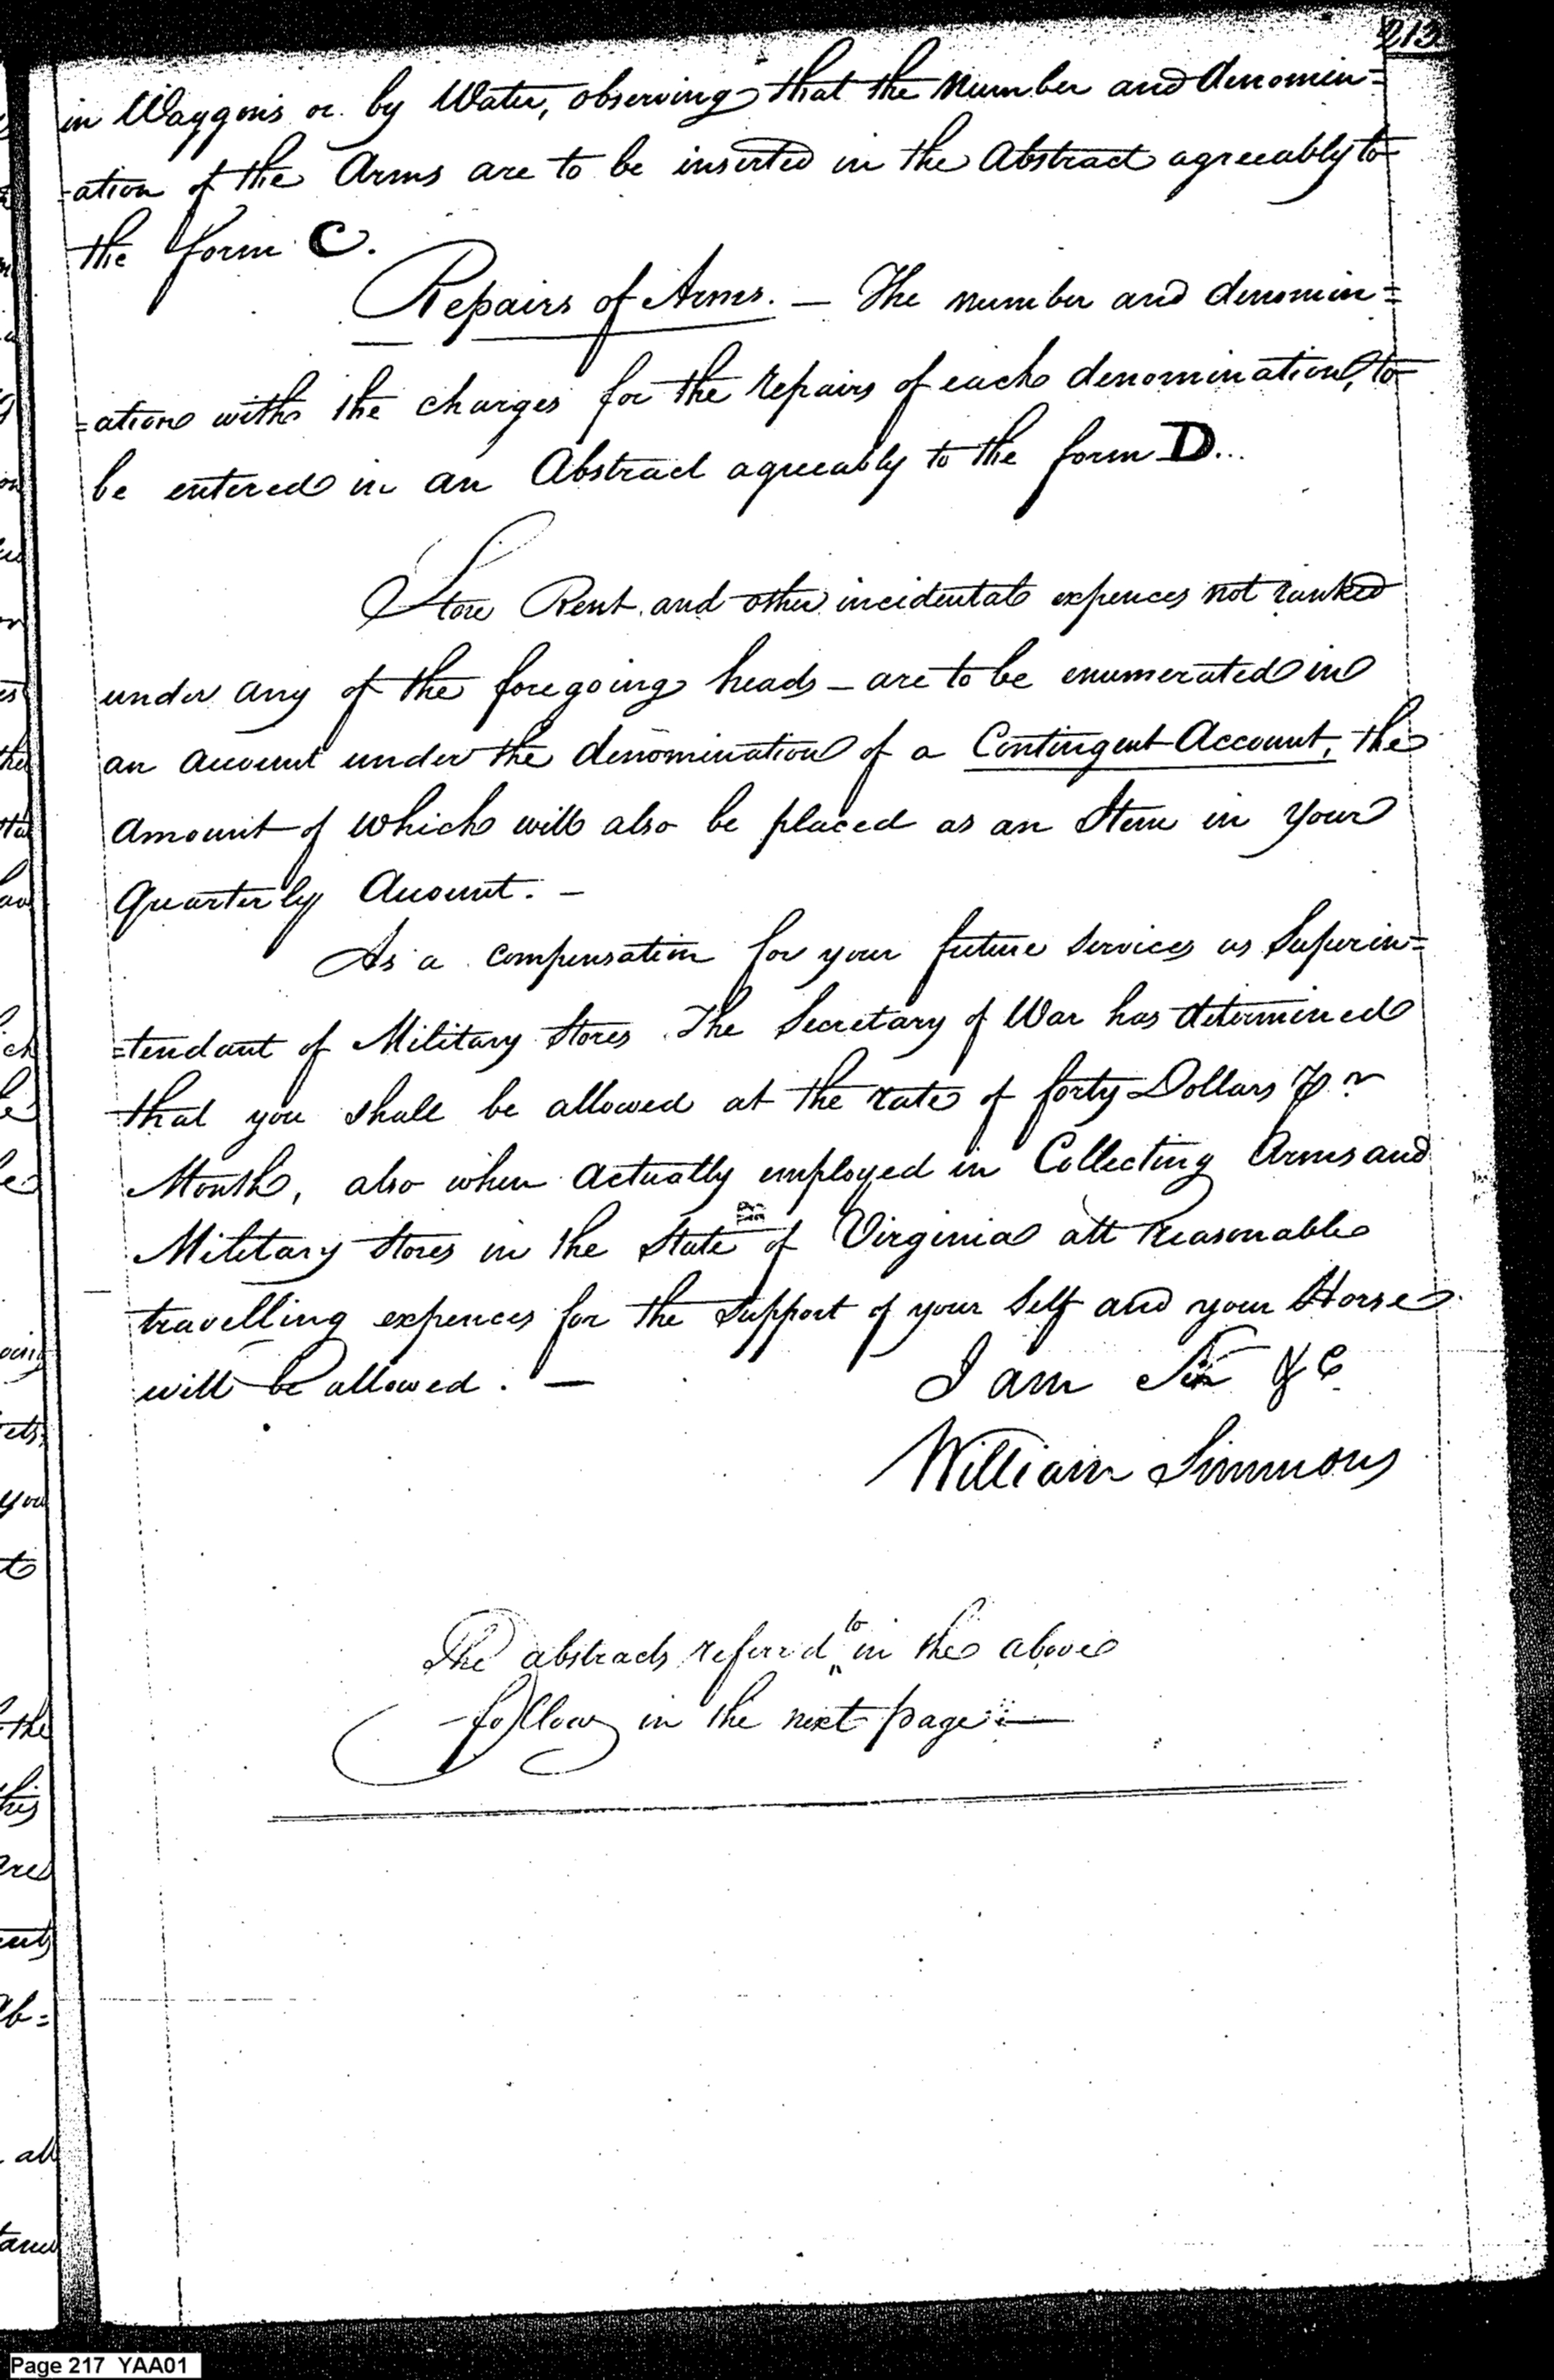 213
in Waggons or by Water, observing that the Number and denomin=
-ation of the Arms are to be inserted in the Abstract agreeably to
the form C.
Repairs of Arms. — The number and denomin=
=ation with the charges for the repairs of each denomination, to
be entered in an Abstract agreeably to the form D...
Store Rent and other incidental expences not ranked
under any of the foregoing heads — are to be enumerated in
an account under the denomination of a Contingent Account, the
amount of which will also be placed as an Item in your
Quarterly Account. —
As a compensation for your future services as Superin=
=tendant of Military Stores The Secretary of War has determined
that you shall be allowed at the rate of forty Dollars pr
Month, also when actually employed in Collecting Arms and
Military Stores in the State of Virginia all reasonable
travelling expences for the support of your Self and your Horse
will be allowed. —
I am Sir &c
William Simmons
The abstracts referr'd to in the above
follow in the next page —
Page 217 YAA01